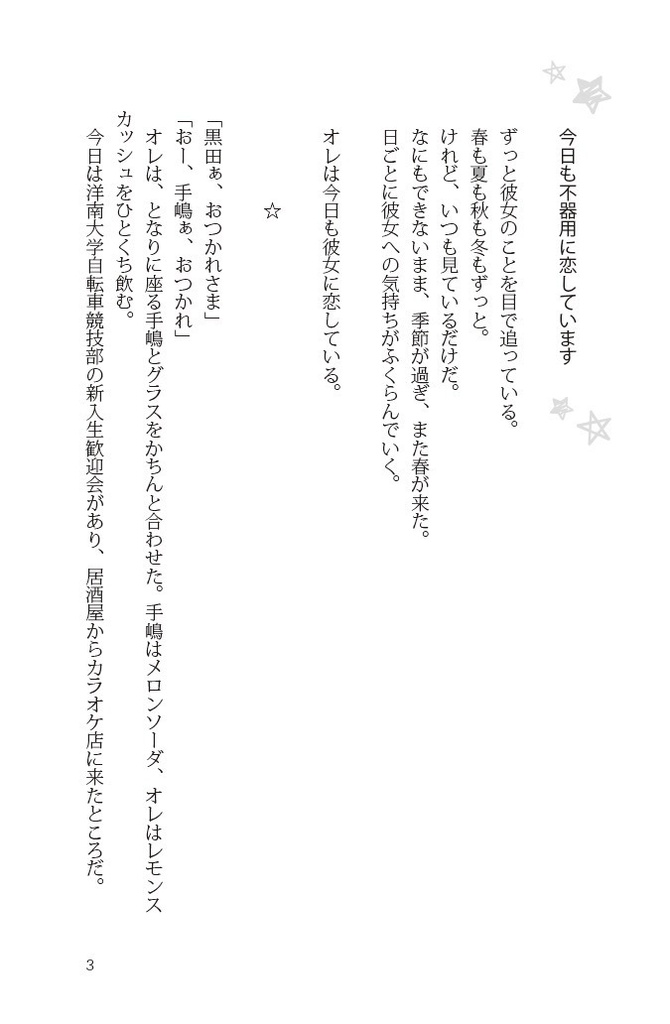 今日も不器用に恋しています
ずっと彼女のことを目で追っている。
春も夏も秋も冬もずっと。
けれど、いつも見ているだけだ。
なにもできないまま、季節が過ぎ、また春が来た。
日ごとに彼女への気持ちがふくらんでいく。
オレは今日も彼女に恋している。
☆
「黒田ぁ、おつかれさま」
「おー、手嶋ぁ、おつかれ」
オレは、となりに座る手嶋とグラスをかちんと合わせた。手嶋はメロンソーダ、オレはレモンス
カッシュをひとくち飲む。
今日は洋南大学自転車競技部の新入生歓迎会があり、居酒屋からカラオケ店に来たところだ。
3